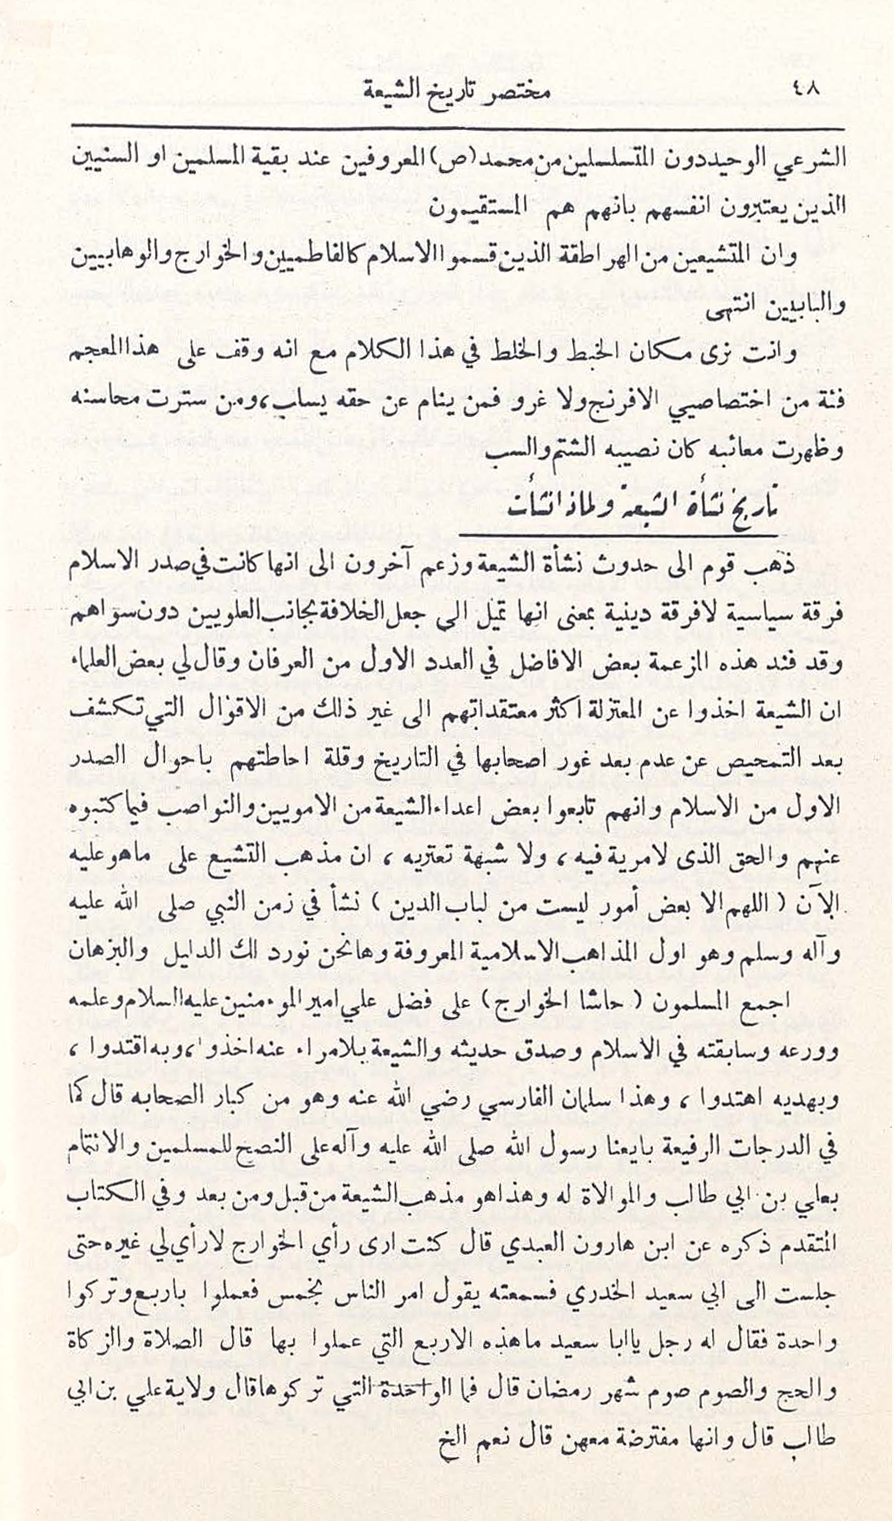 ٤٨
مختصر تاريخ الشيعة
الشرعي الوحيددون المتسلسلين من محمد (ص) المعروفين عند بقية المسلمين او السنيين
الذين يعتبرون انفسهم بانهم هم المستقيمون
وان المتشيعين من الهراطقة الذين قسموا الاسلام كالفاطميين والخوارج والوهابيين
والبابيين انتهى
وانت ترى مكان الخبط والخلط في هذا الكلام مع انه وقف على هذا المعجم
فئة من اختصاصيي الافرنج ولا غرو فمن ينام عن حقه يساب، ومن سترت محاسنه
وظهرت معائبه كان نصيبه الشتم والسب
تاريخ نشأة الشيعة ولماذا نشأت
ذهب قوم الى حدوث نشأة الشيعة وزعم آخرون الى انها كانت في صدر الاسلام
فرقة سياسية لا فرقة دينية بمعنى انها تميل الى جعل الخلافة بجانب العلويين دون سواهم
وقد فند هذه المزعمة بعض الافاضل في العدد الاول من العرفان وقال لي بعض العلماء
ان الشيعة اخذوا عن المعتزلة اكثر معتقداتهم الى غير ذلك من الاقوال التي تكشف
بعد التمحيص عن عدم بعد غور اصحابها في التاريخ وقلة احاطتهم باحوال الصدر
الاول من الاسلام وانهم تابعوا بعض اعداء الشيعة من الامويين والنواصب فيما كتبوه
عنهم والحق الذى لا مرية فيه، ولا شبهة تعتريه، ان مذهب التشيع على ما هو عليه
الآن (اللهم الا بعض أمور ليست من لباب الدين) نشأ في زمن النبي صلى الله عليه
وآله وسلم وهو اول المذاهب الاسلامية المعروفة وها نحن نورد لك الدليل والبرهان
اجمع المسلمون (حاشا الخوارج) على فضل علي امير المؤمنين عليه السلام وعلمه
وورعه وسابقته في الاسلام وصدق حديثه والشيعة بلا مراء عنه اخذوا، وبه اقتدوا،
وبهديه اهتدوا، وهذا سلمان الفارسي رضي الله عنه وهو من كبار الصحابه قال كما
في الدرجات الرفيعة بايعنا رسول الله صلى الله عليه وآله على النصح للمسلمين والائتمام
بعلي بن ابي طالب والموالاة له وهذا هو مذهب الشيعة من قبل ومن بعد وفي الكتاب
المتقدم ذكره عن ابن هارون العبدي قال كنت ارى رأي الخوارج لا رأي لي غيره حتى
جلست الى ابي سعيد الخدري فسمعته يقول امر الناس بخمس فعملوا باربع وتركوا
واحدة فقال له رجل ياابا سعيد ما هذه الاربع التي عملوا بها قال الصلاة والزكاة
والحج والصوم صوم شهر رمضان قال فما الواحدة التي تركوها قال ولاية علي بن ابي
طالب قال وانها مفترضة معهن قال نعم الخ